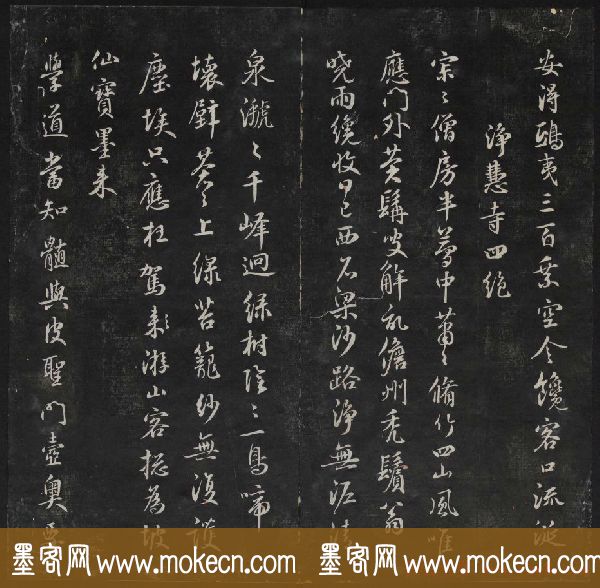 安得鴟夷三百乘空令饞客口流涎
淨慧寺四絶
宗〻僧房半夢中蕭〻脩竹四山風唯
應門外蒼髯叟解亂儋州禿鬢翁
曉雨纔收日已西石梁沙路淨無泥清
泉㶁〻千峰迥緑樹陰〻一鳥啼
壞壁蒼〻上緑苔籠紗無復
塵埃只應枉駕來游山客揔為坡
仙寶墨来
學道當知髓與皮聖門壼奥
墨客网 www.mokecn.com 墨客网 www.mokecn.com